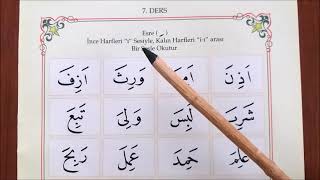 7. DERS
Esre (ـِ)
İnce Harfleri "i" Sesiyle, Kalın Harfleri "i-ı" arası
Bir Sesle Okutur
اَذِنَ وَرِثَ اَزِفَ
شَرِبَ لَبِسَ وَلِيَ تَبِعَ
عَلِمَ حَمِدَ عَمِلَ رَبِحَ